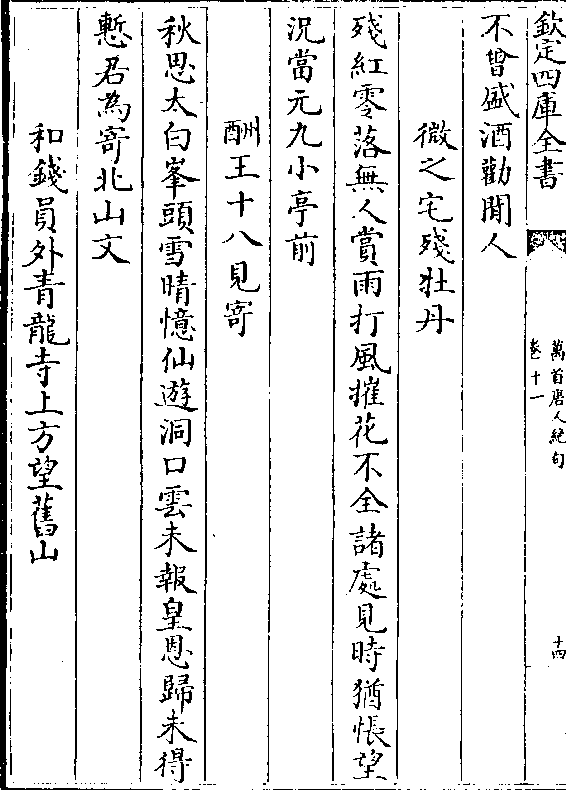 欽定四庫全書
萬首唐人絶句
卷十一
十四
不曾盛酒勸閒人
微之宅殘牡丹
殘紅零落無人賞雨打風摧花不全諸處見時猶悵望
況當元九小亭前
酬王十八見寄
秋思太白峯頭雪晴憶仙遊洞口雲未報皇恩歸未得
慙君為寄北山文
和錢員外青龍寺上方望舊山